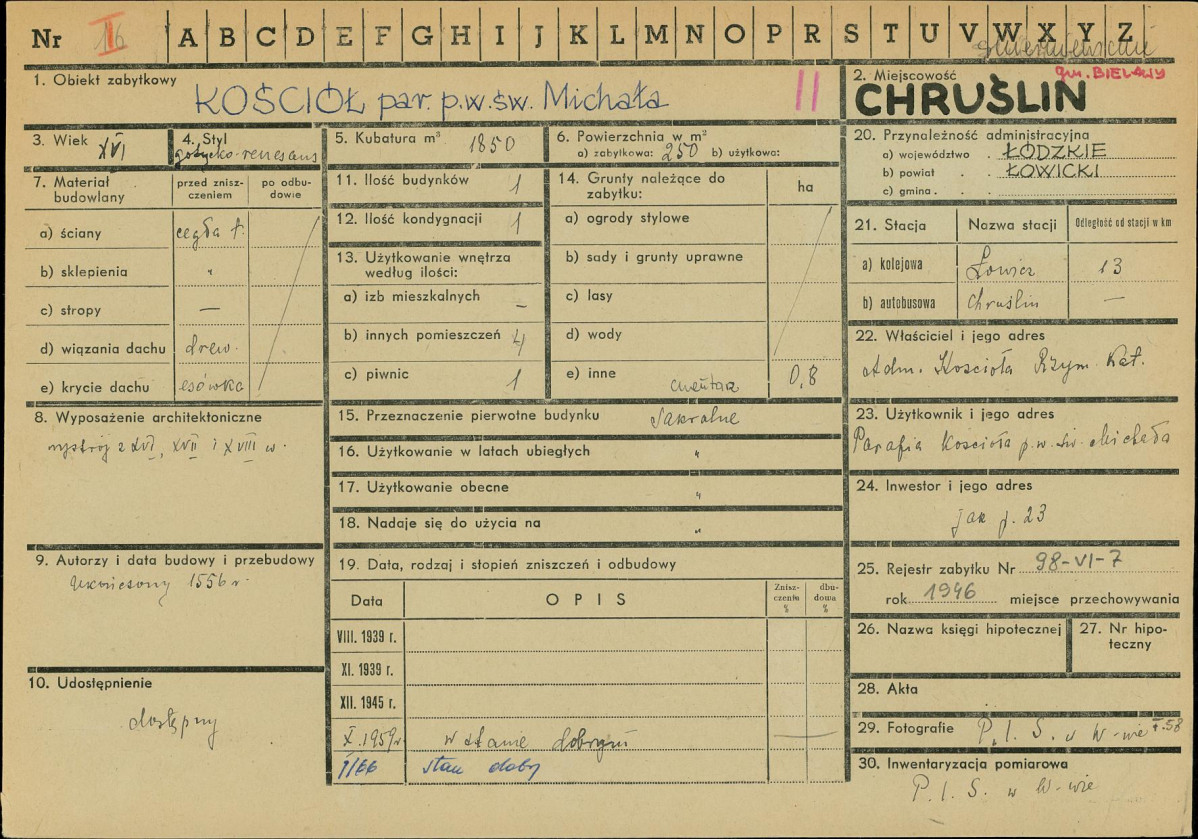 Nr II A B C D E F G H I J K L M N O P R S T U V W X Y Z
1. Obiekt zabytkowy
KOŚCIÓŁ par. p.w. św. Michała II
2. Miejscowość gm. BIELAWY
CHRUŚLIN
3. Wiek XVI
4. Styl
gotycko-renesans
5. Kubatura m³ 1850
6. Powierzchnia w m²
a) zabytkowa: 250 b) użytkowa:
7. Materiał budowlany
przed zniszczeniem
po odbudowie
a) ściany cegła
b) sklepienia "
c) stropy —
d) wiązania dachu drew.
e) krycie dachu esówka
8. Wyposażenie architektoniczne
wystrój z XVI, XVII i XVIII w.
9. Autorzy i data budowy i przebudowy
Ukończony 1556 r.
10. Udostępnienie
dostępny
11. Ilość budynków 1
12. Ilość kondygnacji 1
13. Użytkowanie wnętrza
według ilości:
a) izb mieszkalnych –
b) innych pomieszczeń 4
c) piwnic 1
14. Grunty należące do
zabytku:
ha
a) ogrody stylowe
b) sady i grunty uprawne
c) lasy
d) wody
e) inne cmentarz 0,8
15. Przeznaczenie pierwotne budynku Sakralne
16. Użytkowanie w latach ubiegłych "
17. Użytkowanie obecne "
18. Nadaje się do użycia na "
19. Data, rodzaj i stopień zniszczeń i odbudowy
Data OPIS Zniszczenia % dbudowa %
VIII. 1939 r.
XI. 1939 r.
XII. 1945 r.
X. 1959 r. w stanie dobrym
I/66 stan dobry
20. Przynależność administracyjna
a) województwo . ŁÓDZKIE
b) powiat . . ŁOWICKI
c) gmina . . .
21. Stacja Nazwa stacji Odległość od stacji w km
a) kolejowa Łowicz 13
b) autobusowa Chruślin —
22. Właściciel i jego adres
Adm. Kościoła Rzym. Kat.
23. Użytkownik i jego adres
Parafia Kościoła p.w. św. Michała
24. Inwestor i jego adres
jak p. 23
25. Rejestr zabytku Nr 98-VI-7
rok 1946 miejsce przechowywania
26. Nazwa księgi hipotecznej
27. Nr hipoteczny
28. Akta
29. Fotografie P. I. S. w W-wie F.58
30. Inwentaryzacja pomiarowa
P. I. S. w W-wie